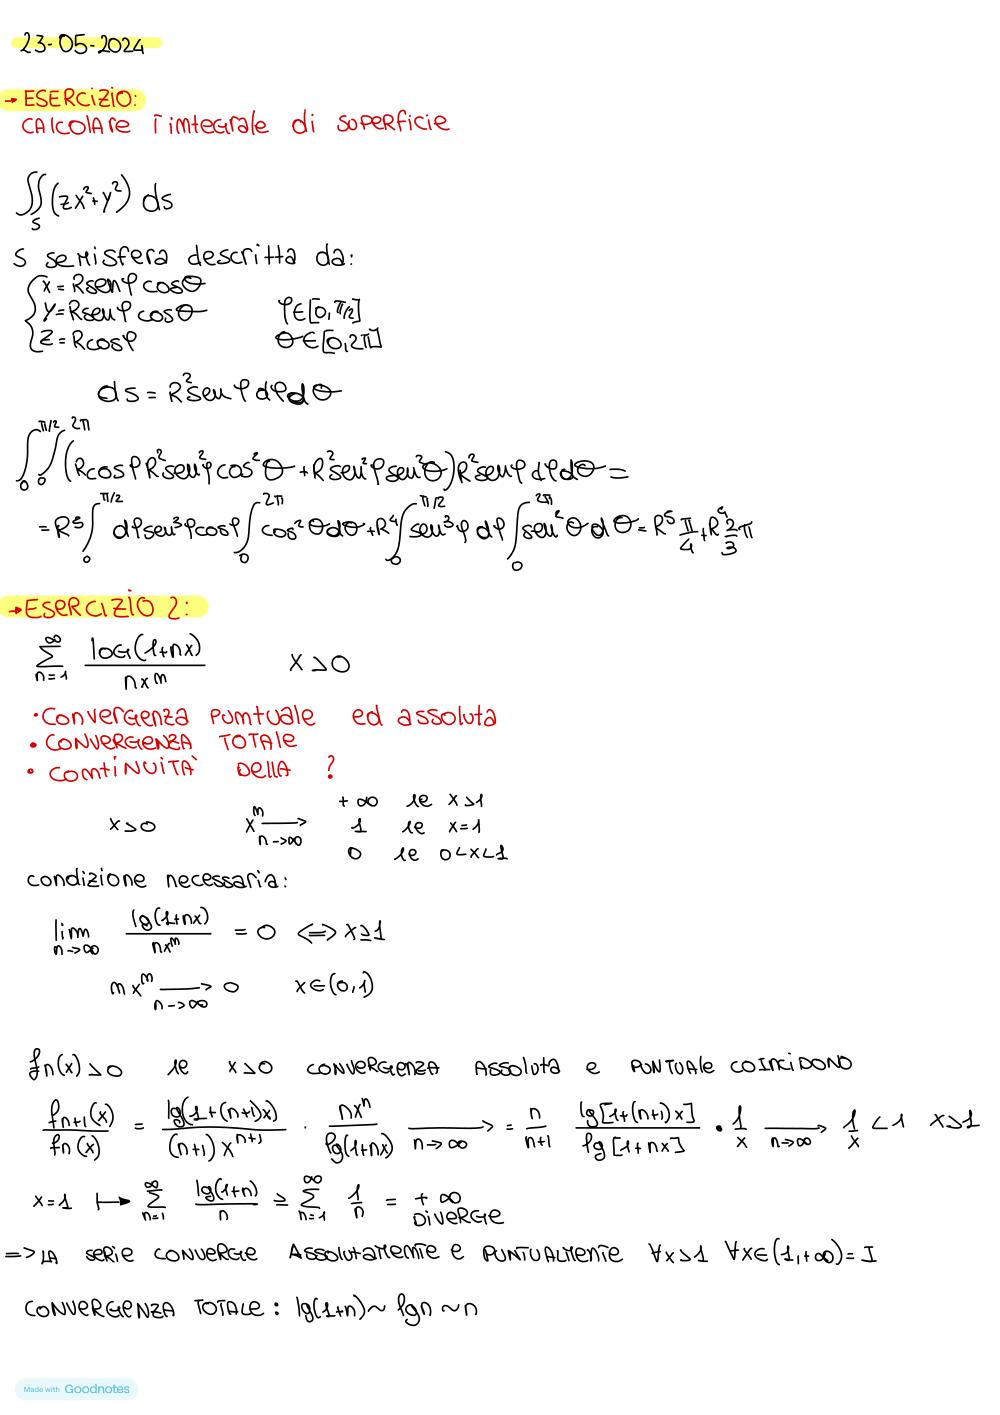 23-05-2024
→ ESERCIZIO:
CALCOLARE l'integrale di superficie
∬_S (zx²+y²) ds
S semisfera descritta da:
x = Rsenφ cosθ
y = Rsenφ cosθ    φ∈[0,π/2]
z = Rcosφ    θ∈[0,2π]
ds = R²senφ dφdθ
∫_0^{π/2} ∫_0^{2π} (Rcosφ R²sen²φ cos²θ + R²sen²φ sen²θ) R²senφ dφdθ =
= R⁵ ∫_0^{π/2} dφ sen³φ cosφ ∫_0^{2π} cos²θ dθ + R⁴ ∫_0^{π/2} sen³φ dφ ∫_0^{2π} sen²θ dθ = R⁵ π/4 + R⁴ 2/3 π
→ ESERCIZIO 2:
∑_{n=1}^{∞} log(1+nx) / nxⁿ    x>0
• Convergenza puntuale ed assoluta
• CONVERGENZA TOTALE
• CONTINUITÀ DELLA ?
+∞ se x>1
x>0    xⁿ →_{n→∞} 1 se x=1
0 se 0<x<1
condizione necessaria:
lim_{n→∞} lg(1+nx) / nxⁿ = 0 ⟺ x≥1
n xⁿ →_{n→∞} 0    x∈(0,1)
fn(x)>0 se x>0 CONVERGENZA ASSOLUTA e PUNTUALE COINCIDONO
f_{n+1}(x) / fn(x) = lg(1+(n+1)x) / (n+1) x^{n+1} · nxⁿ / lg(1+nx) →_{n→∞} = n / n+1 lg[1+(n+1)x] / lg[1+nx] · 1/x →_{n→∞} 1/x <1 x>1
x=1 ↦ ∑_{n=1}^{∞} lg(1+n) / n ≥ ∑_{n=1}^{∞} 1/n = +∞
DIVERGE
=> LA SERIE CONVERGE ASSOLUTAMENTE E PUNTUALMENTE ∀x>1 ∀x∈(1,+∞)=I
CONVERGENZA TOTALE: lg(1+n) ~ lgn ~ n
Made with Goodnotes